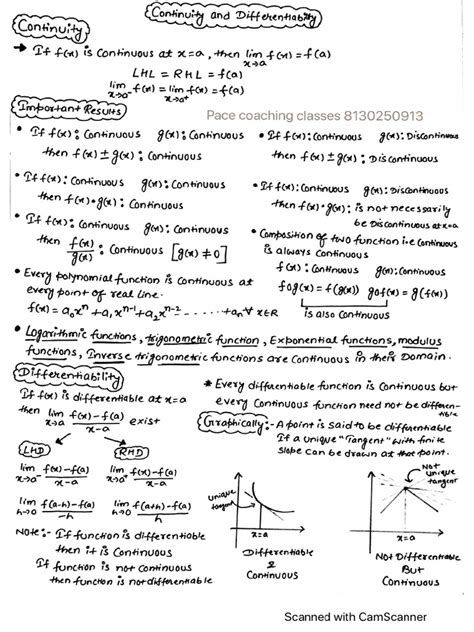 Continuity and Differentiability
Continuity
→ If f(x) is Continuous at x=a, then lim f(x) = f(a)
x→a
LHL = RHL = f(a)
lim f(x) = lim f(x) = f(a)
x→a⁻ x→a⁺
Important Results
Pace coaching classes 8130250913
• If f(x): Continuous g(x): Continuous
then f(x) ± g(x): Continuous
• If f(x): Continuous g(x): Discontinuous
then f(x) ± g(x): Discontinuous
• If f(x): Continuous g(x): Continuous
then f(x) • g(x): Continuous
• If f(x): Continuous g(x): Discontinuous
then f(x) • g(x): is not necessarily
be Discontinuous at x=a
• If f(x): Continuous g(x): Continuous
then f(x)/g(x) : Continuous [g(x) ≠ 0]
• Composition of two function i.e continuous
is always continuous
f(x): Continuous g(x): Continuous
fog(x) = f(g(x)) gof(x) = g(f(x))
is also Continuous
• Every polynomial function is continuous at
every point of real line.
f(x) = a₀xⁿ + a₁xⁿ⁻¹ + a₂xⁿ⁻² ------ + aₙ ∀ x∈R
• Logarithmic functions, trigonometric function, Exponential functions, modulus
functions, Inverse trigonometric functions are Continuous in their Domain.
Differentiability
If f(x) is differentiable at x=a
then lim f(x)-f(a)/x-a exist
x→a
LHD RHD
lim f(x)-f(a)/x-a lim f(x)-f(a)/x-a
x→a⁻ x→a⁺
lim f(a-h)-f(a)/-h lim f(a+h)-f(a)/h
h→0 h→0
Note:- If function is differentiable
then it is Continuous
If function is not continuous
then function is not differentiable
* Every differentiable function is Continuous but
every Continuous function need not be differentiable
Graphically:- A point is said to be differentiable
If a unique "Tangent" with finite
slope can be drawn at that point.
unique
tangent
x=a
Differentiable
&
Continuous
Not
unique
tangent
x=a
Not Differentiable
But
Continuous
Scanned with CamScanner